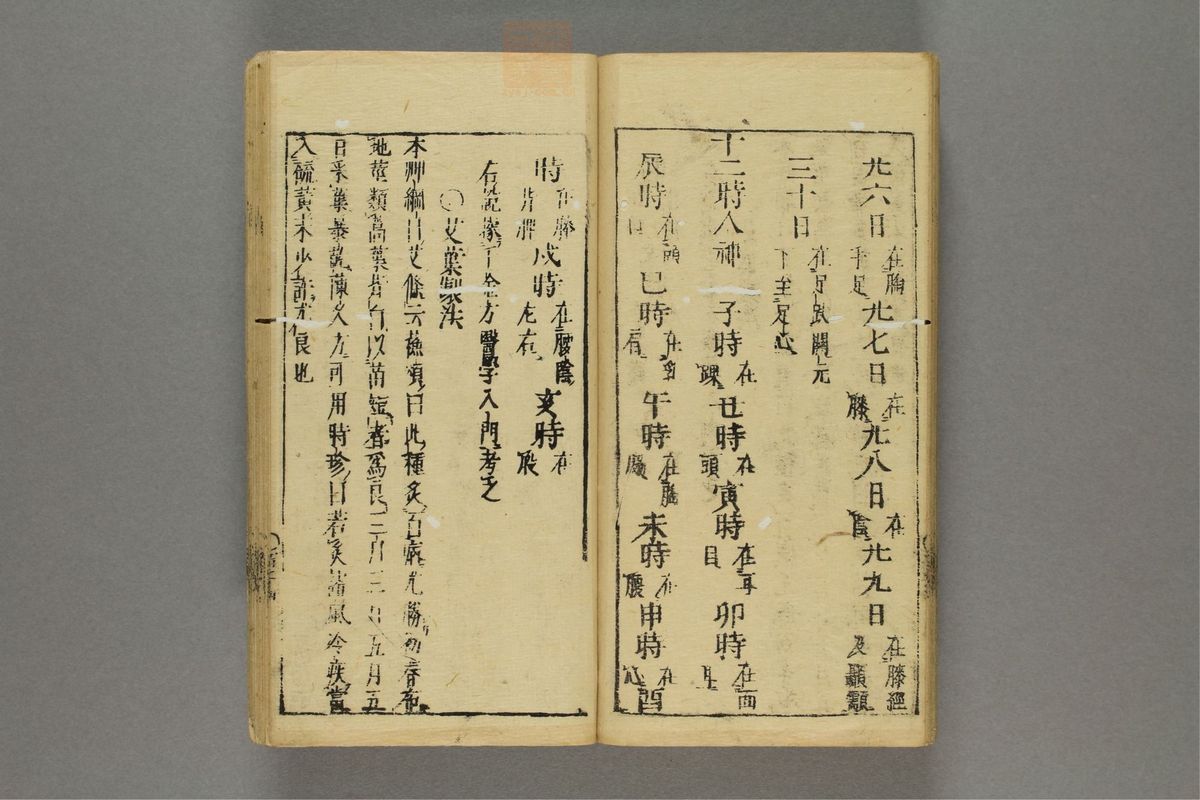 廿六日 在胸手足 廿七日 在膝 廿八日 在陰 廿九日 在膝脛及顳顬
三十日 在足趺關元下至足心
十二時人神 子時 在踝 丑時 在頭 寅時 在耳目 卯時 在面
辰時 在頭 巳時 在肩 午時 在胸 未時 在腰 申時 在心 酉
時 在 背脾 戌時 在腰陰左右 亥時 在股
右說據千金方醫學入門考之
〇艾葉製法
本艸綱目艾條云蘓頌曰此種灸百病尤勝初春布
地莖類蒿葉背白以苗短者為良三月三日五月五
日采葉暴乾陳久方可用時珍曰若灸諸風冷疾當
入硫黃末少許尤良也